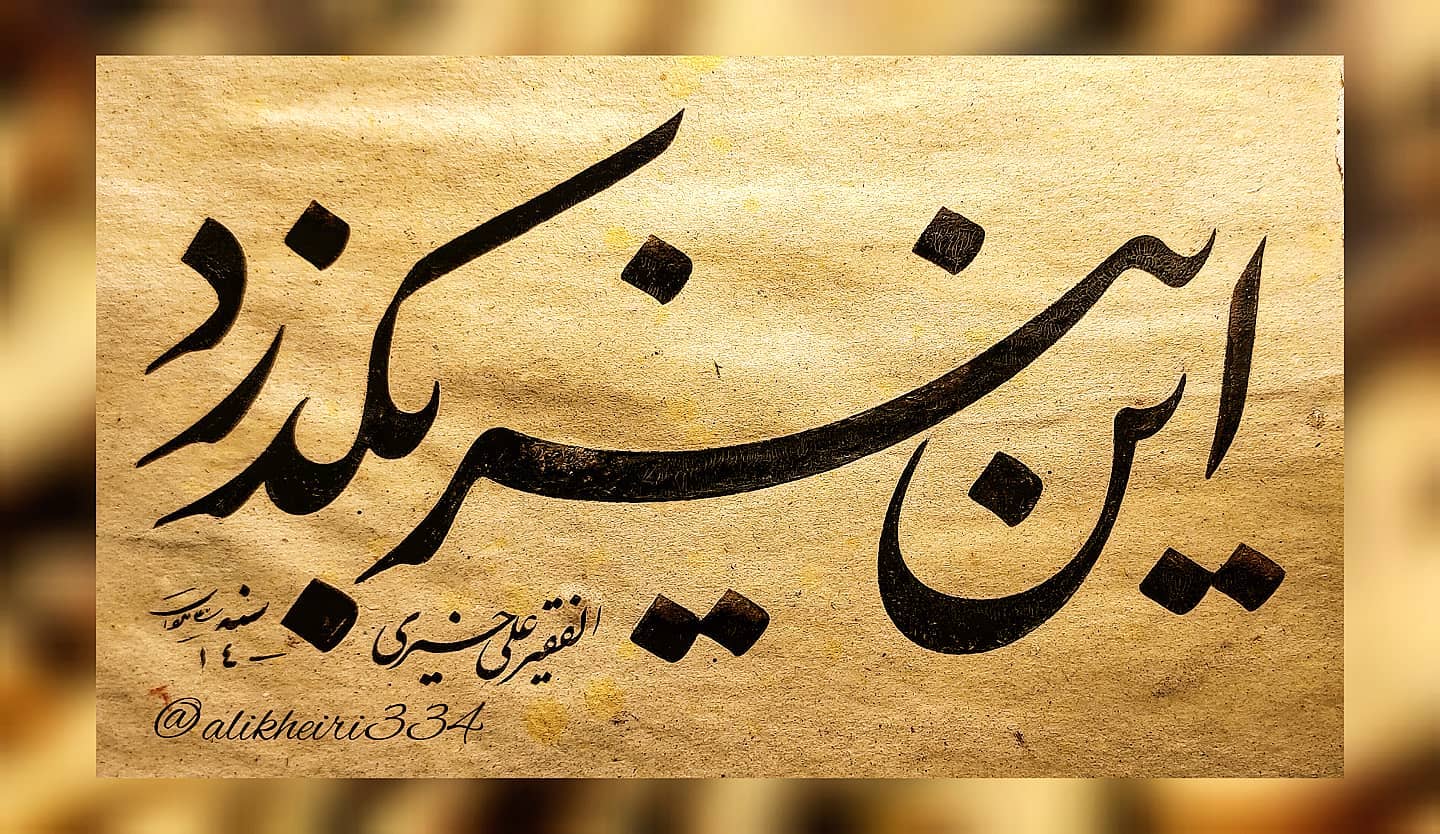 این نیز بگذرد
الفقیر علی خیری
سنه ۱۴
@alikheiri334